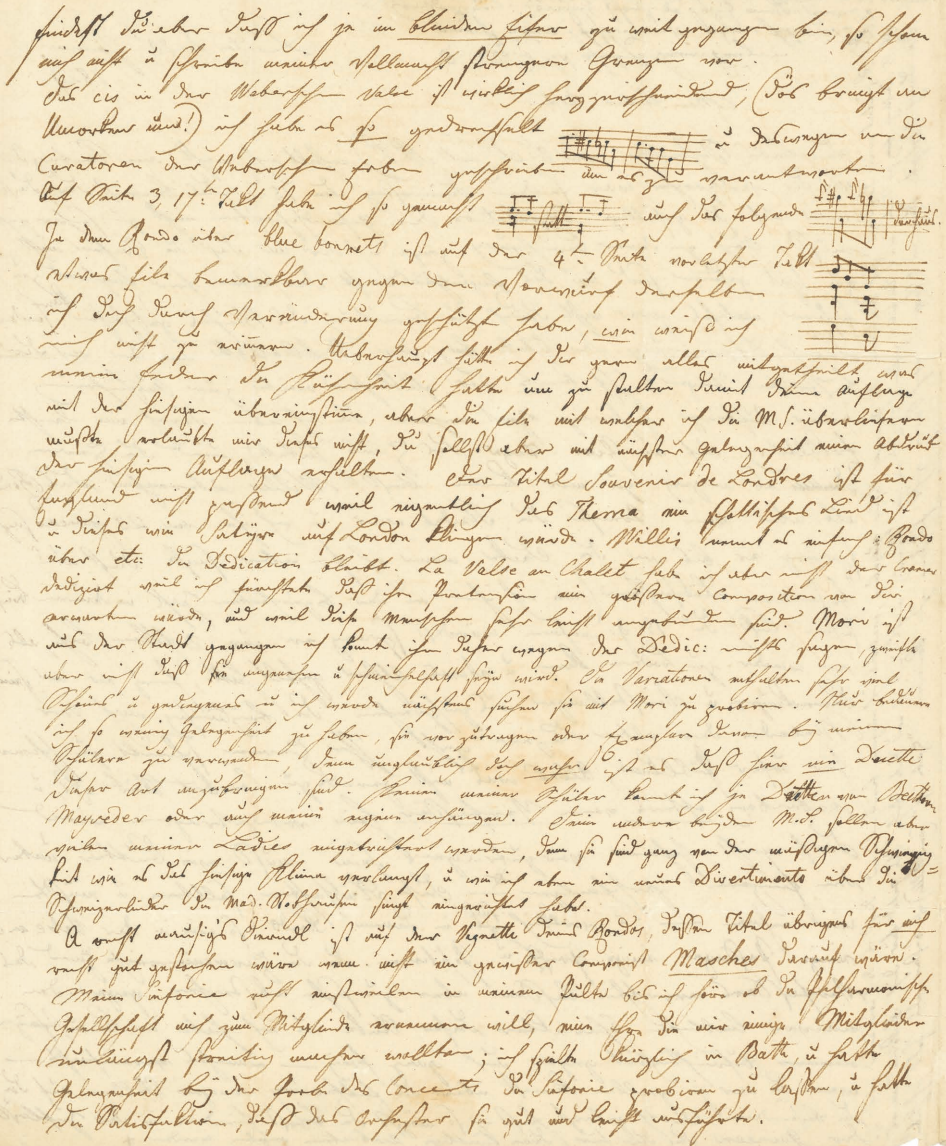 findest du aber daß ich je im blinden Eifer zu weit gegangen bin, so schone
mich nicht u schreibe meiner Vollmacht strengere Grenzen vor.
Das cis in der Weberschen Valse ist wirklich herzzerschneidend, (dös bringt an
Umorkene um!) ich habe es so gedrechselt u deswegen an die
Curatoren der Weberschen Erben geschrieben um es zu verantworten.
Auf Seite 3, 17t Takt habe ich so gemacht statt auch das folgende durchaus.
In dem Rondo über blue bonnets ist auf der 4t Seite vorletzter Takt
etwas Eile bemerkbar gegen den Vorwurf derselben
ich dich durch Veränderung geschützt habe, wie weiß ich
mich nicht zu erinnern. Ueberhaupt hätte ich dir gern alles mitgetheilt was
meine Feder die Kühnheit hatte um zu stalten damit deine Auflage
mit der hiesigen übereinstime, aber die Eile mit welcher ich die M.S. überliefern
mußte erlaubte mir dieses nicht, du sollst aber mit nächster Gelegenheit einen Abdruck
der hiesigen Auflage erhalten. Der Titel Souvenir de Londres ist für
England nicht passend weil eigentlich das Thema ein schottisches Lied ist
u dieses wie Satyre auf London klingen würde. Willis nennt es einfach: Rondo
über etc: die Dedication bleibt. La Valse au Chalet habe ich aber nicht der Cramer
dedizirt weil ich fürchtete daß ihre Pretension eine größere Composition von dir
erwarten würde, und weil diese Menschen sehr leicht angebunden sind. Mori ist
aus der Stadt gegangen ich konnte ihm daher wegen der Dedic: nichts sagen, zweifle
aber nicht daß sie angenehm u schmeichelhaft seyn wird. Die Variationen enthalten sehr viel
Schönes u gediegenes u ich werde nächstens suchen sie mit Mori zu probiren. Nur bedaure
ich so wenig Gelegenheit zu haben, sie vorzutragen oder Exemplare davon bey meinen
Schülern zu verwenden, denn unglaublich doch wahr! ist es daß hier nie Duette
dieser Art anzubringen sind. Keinen meiner Schüler konnte ich je Duetten von Beethoven
Mayseder oder auch meine eigene anhängen. Deine andere beyden M.S. sollen aber
vielen meiner Ladies eingetrichtert werden, denn sie sind ganz von der mäßigen Schwierig=
keit wie es das hiesige Klima verlangt, u wie ich eben ein neues Divertimento über die
Schweizerlieder die Mad. Stockhausen singt eingerichtet habe.
A recht mausig's Dierndl ist auf der Vignette deines Rondos, dessen Titel übrigens für mich
recht gut gestochen wäre wenn nicht ein gewisser Componist Masches darauf wäre.
Meine Sinfonie ruht einstweilen in meinem Pulte bis ich höre ob die Philharmonische
Gesellschaft mich zum Mitgliede ernennen will, eine Ehre die mir einige Mitglieder
unlängst streitig machen wollten; ich spielte kürzlich in Bath, u hatte
Gelegenheit bey der Probe des Concerts die Sinfonie probiren zu lassen, u hatte
die Satisfaktion, daß das Orchester sie gut und leicht ausführte.